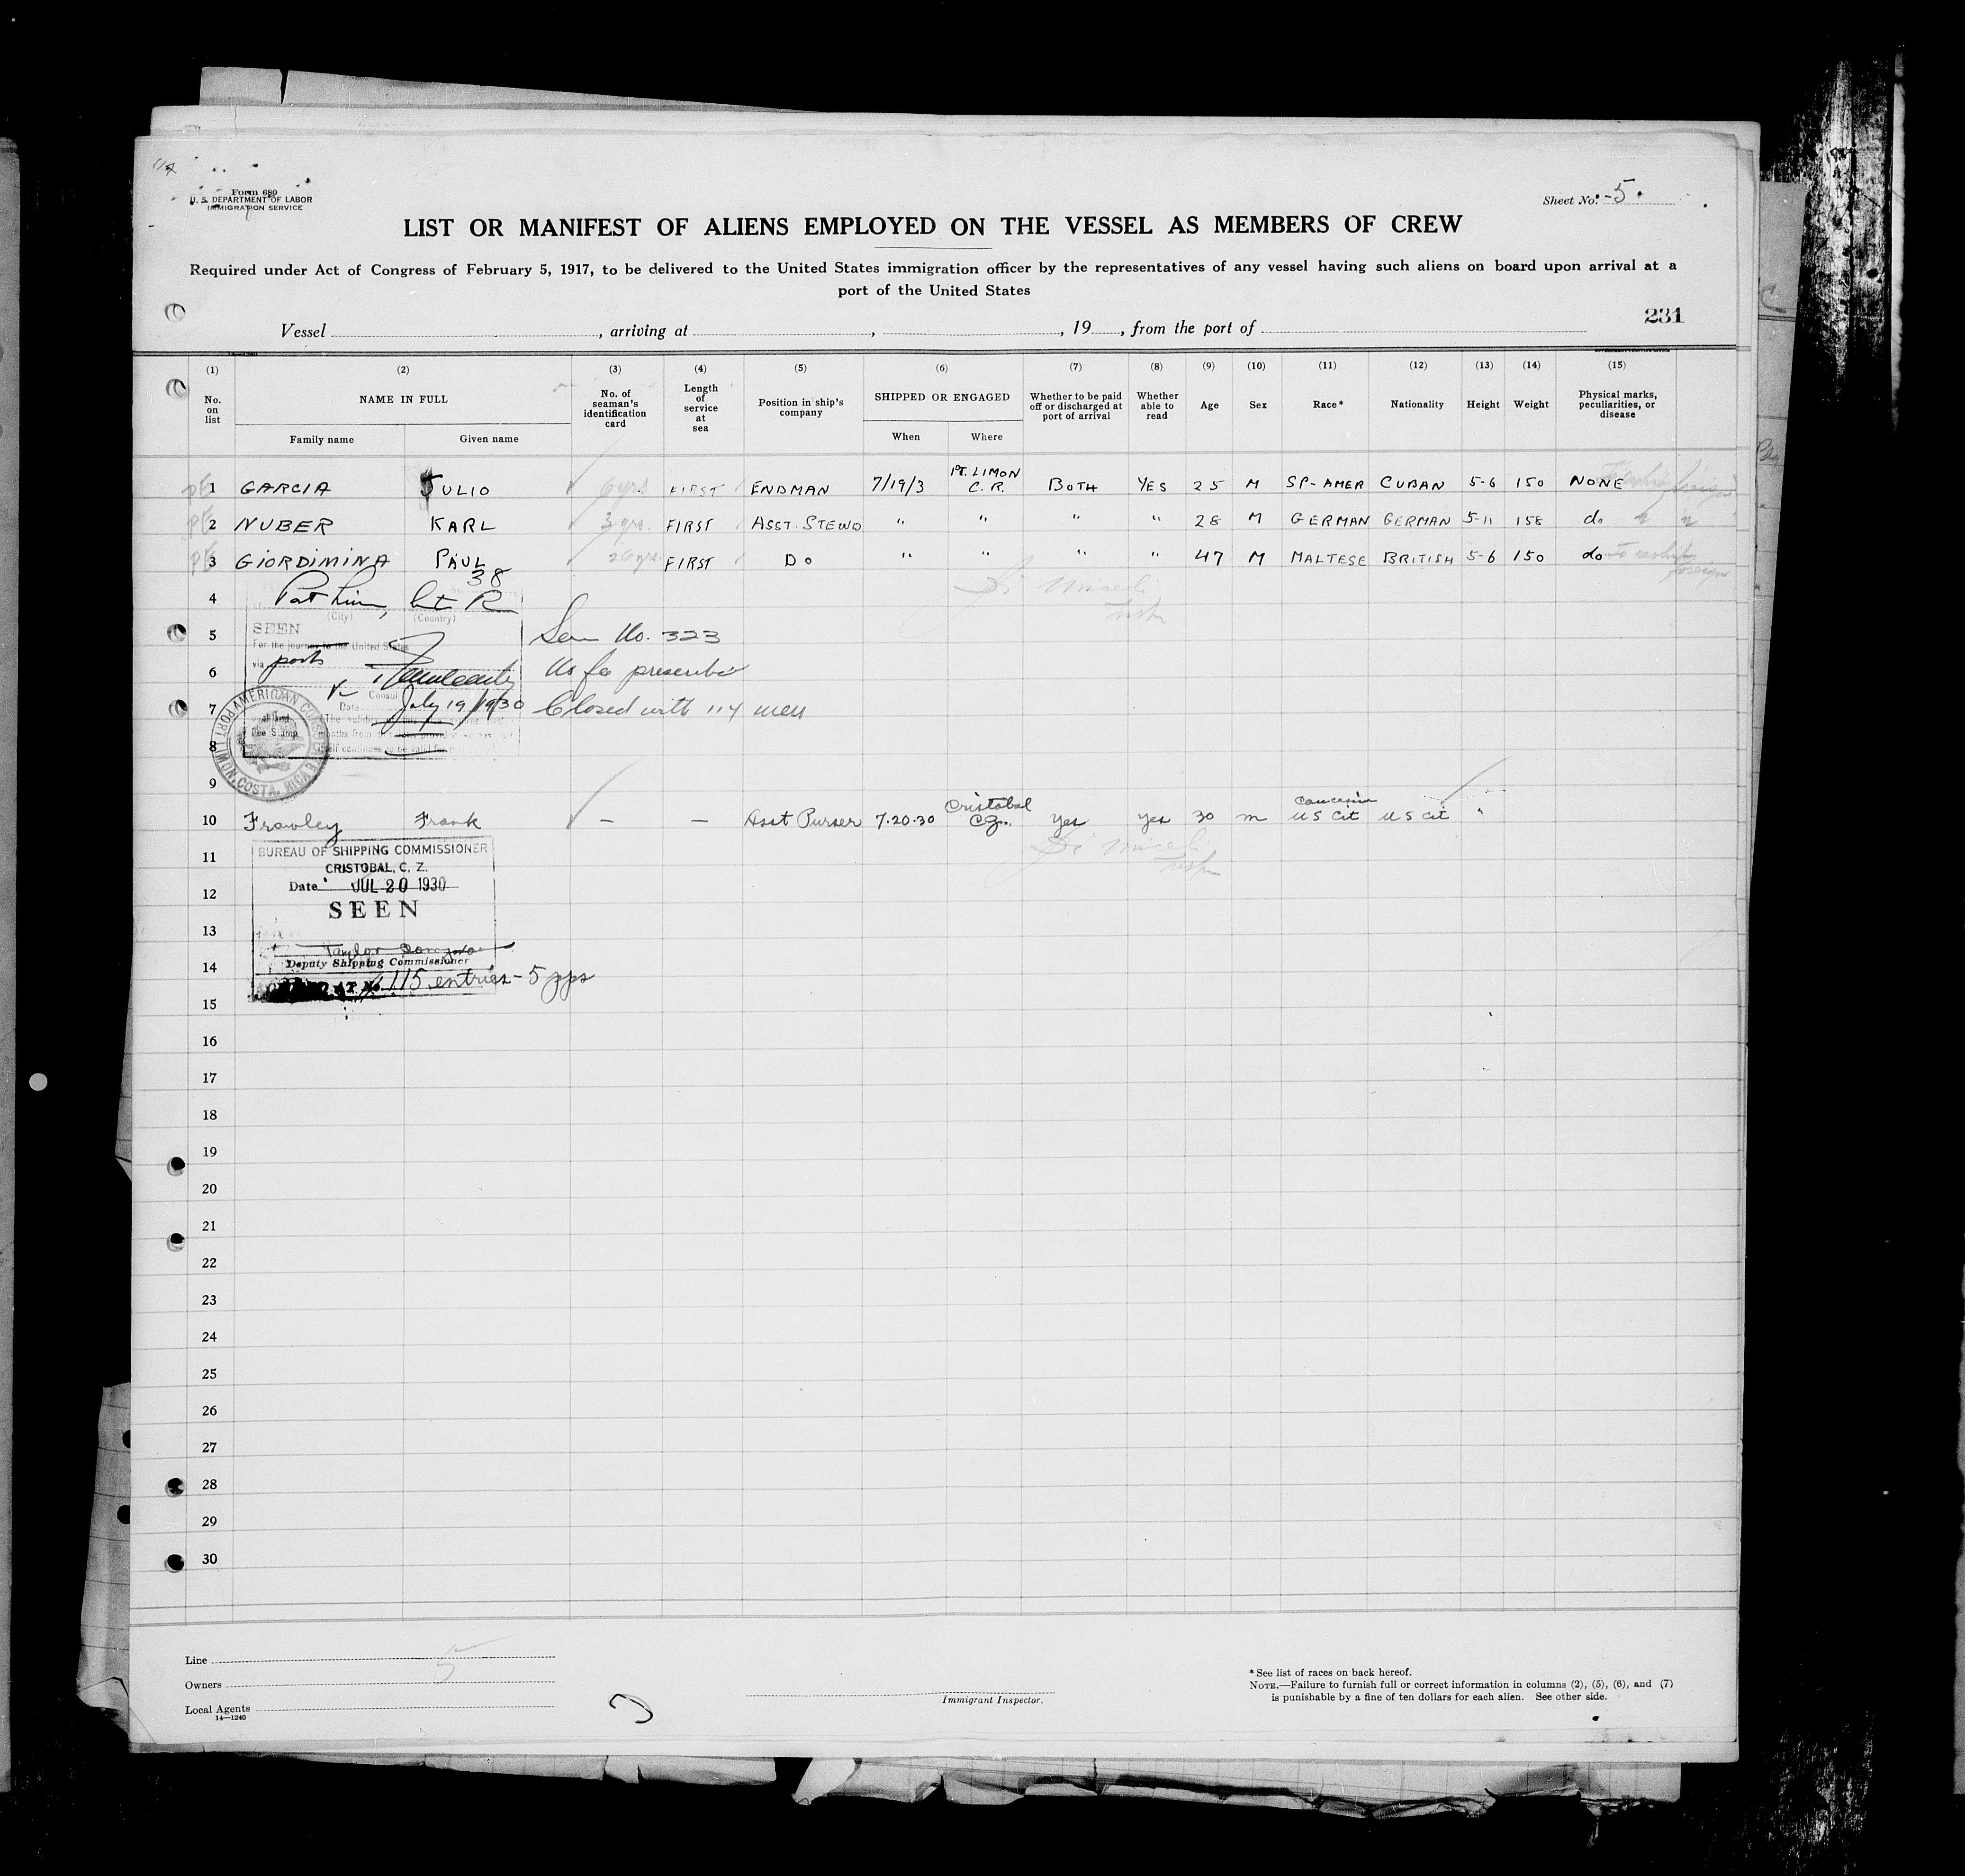 Form 680
U. S. DEPARTMENT OF LABOR
IMMIGRATION SERVICE
Sheet No. 5
LIST OR MANIFEST OF ALIENS EMPLOYED ON THE VESSEL AS MEMBERS OF CREW
Required under Act of Congress of February 5, 1917, to be delivered to the United States immigration officer by the representatives of any vessel having such aliens on board upon arrival at a
port of the United States
231
Vessel , arriving at , , 19 , from the port of
(1) (2) (3) (4) (5) (6) (7) (8) (9) (10) (11) (12) (13) (14) (15)
No. on list NAME IN FULL No. of seaman's identification card Length of service at sea Position in ship's company SHIPPED OR ENGAGED Whether to be paid off or discharged at port of arrival Whether able to read Age Sex Race* Nationality Height Weight Physical marks, peculiarities, or disease
Family name Given name When Where
1 GARCIA JULIO 6 yrs FIRST ENDMAN 7/19/3 PT. LIMON C.R. BOTH YES 25 M SP-AMER CUBAN 5-6 150 NONE
2 NUBER KARL 3 yrs. FIRST ASST. STEWD " " " " 28 M GERMAN GERMAN 5-11 158 do
3 GIORDIMINA PAUL 26 yrs FIRST DO " " " " 47 M MALTESE BRITISH 5-6 150 do
38
4
(City) (Country)
5 SEEN
For the journey to the United States
No. 323
6 via ports
presented
7 Consul
Date July 19/1930 Closed with 114 men
8
AMERICAN CONSUL PORT LIMON, COSTA RICA
Fee Stamp
9
10 Frawley Frank — — Asst Purser 7-20-30 Cristobal C.Z. Yes Yes 30 m US Cit US Cit "
11 BUREAU OF SHIPPING COMMISSIONER
CRISTOBAL, C. Z.
12 Date JUL 20 1930
SEEN
13
Deputy Shipping Commissioner
14 115 entries - 5 pps
15
16
17
18
19
20
21
22
23
24
25
26
27
28
29
30
Line 5
Owners
Local Agents
14—1240
Immigrant Inspector.
* See list of races on back hereof.
NOTE.—Failure to furnish full or correct information in columns (2), (5), (6), and (7)
is punishable by a fine of ten dollars for each alien. See other side.